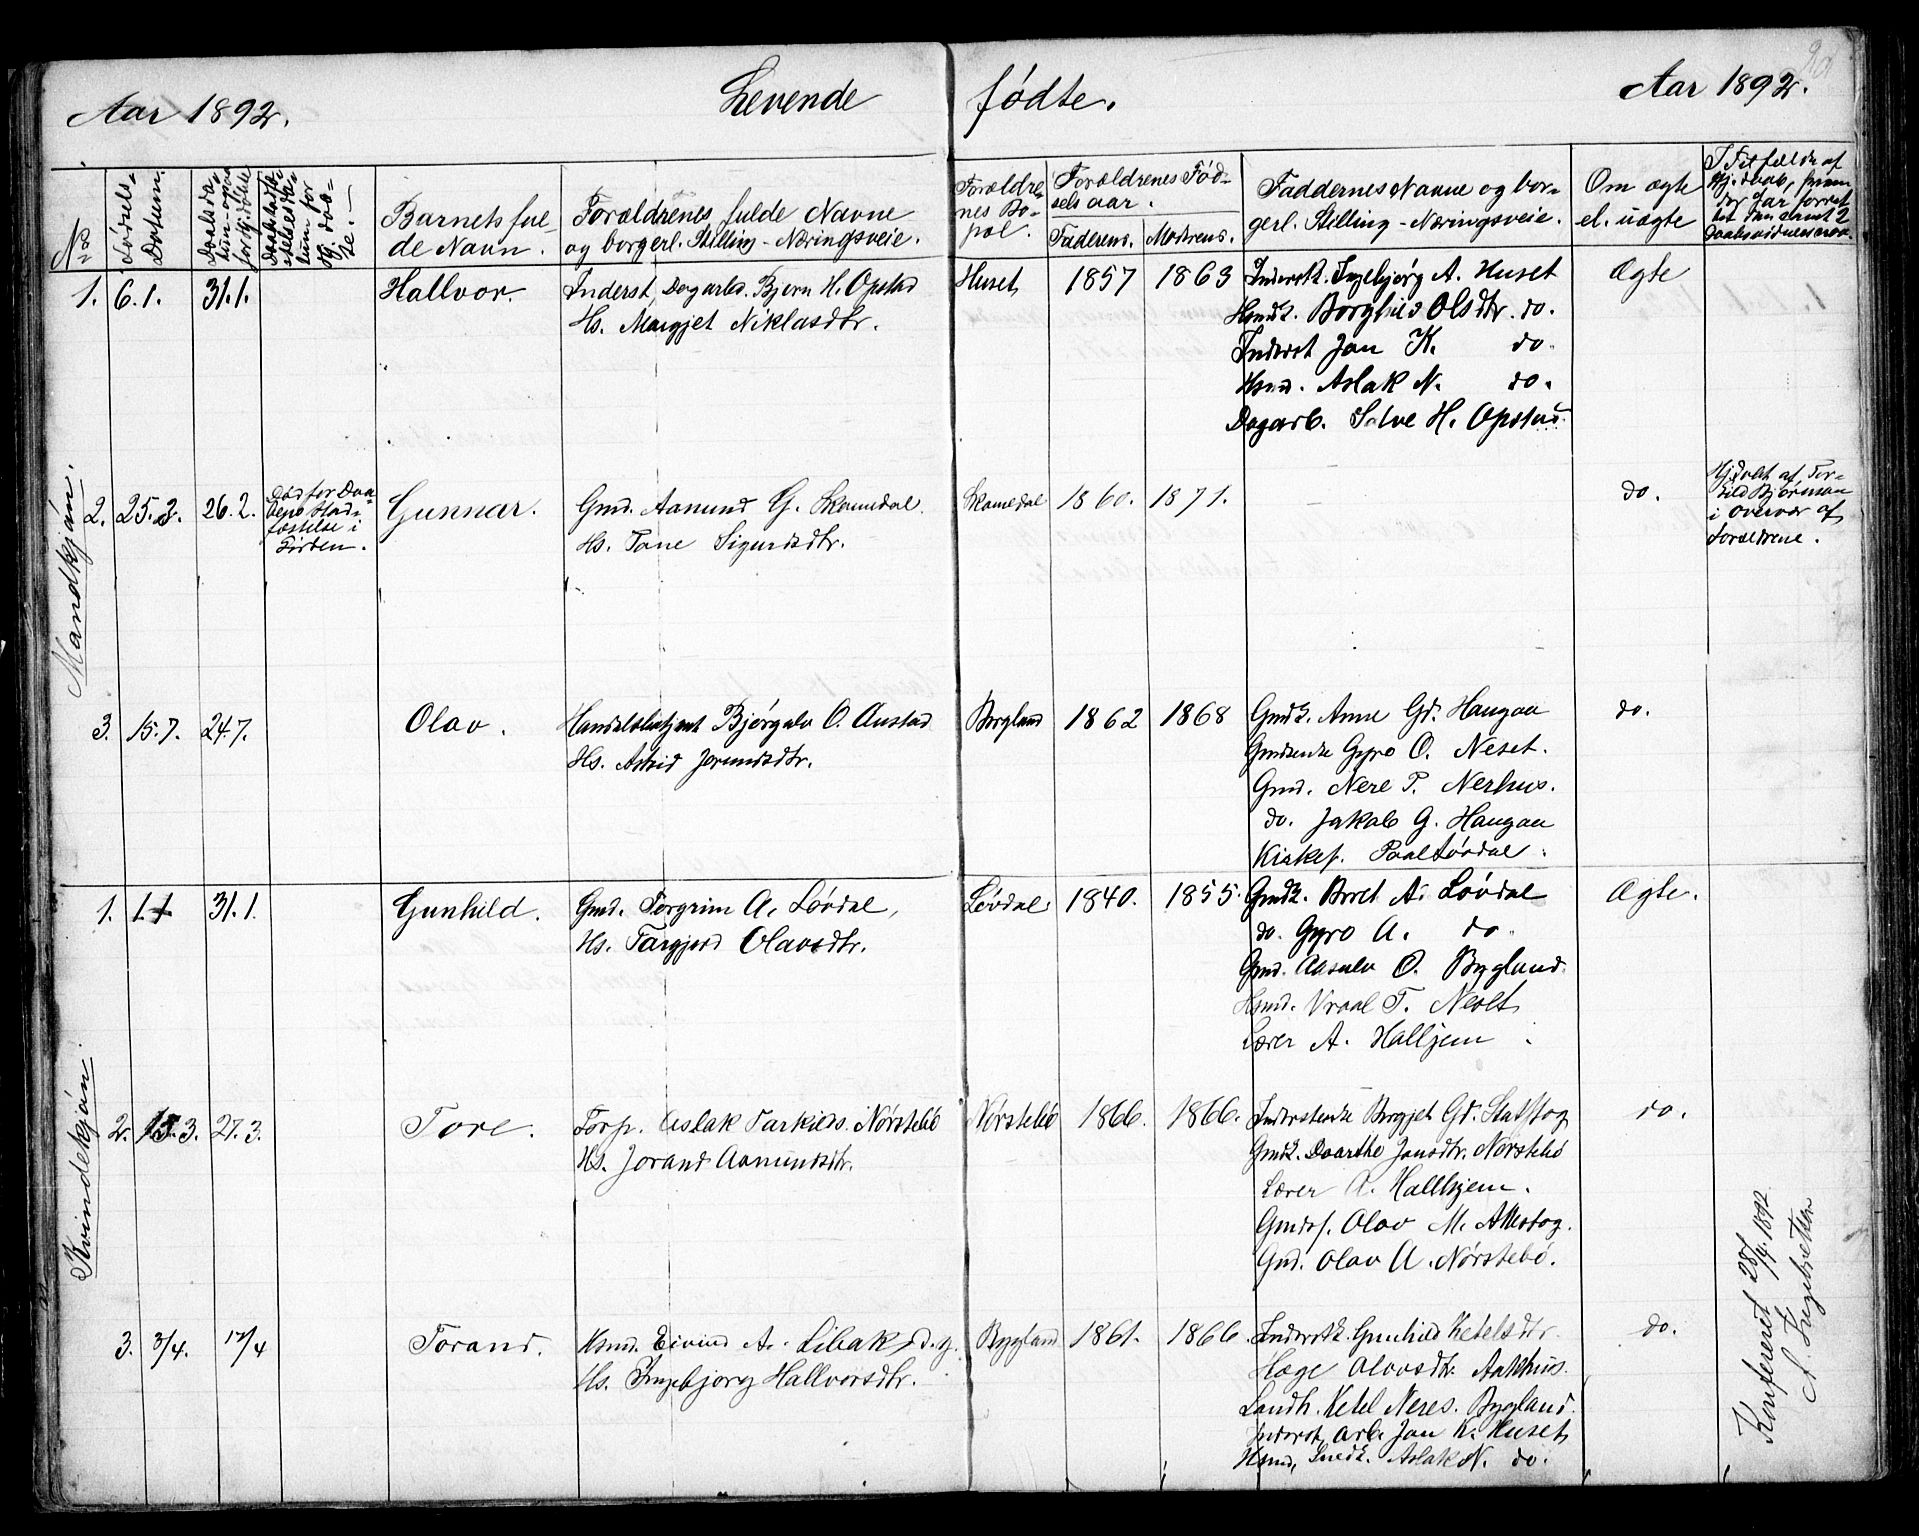 Aar 1892. Levende fødte. Aar 1892.
No
Fødsels-
Datum.
Barnets ful-
de Navn.
Forældrenes fulde Navne
og borgerl. Stilling - Næringsveie.
Forældre-
nes Bo-
pæl.
Forældrenes Fød-
sels aar.
Faderens. Moderens.
Faddernes Navne og bor-
gerl. Stilling - Næringsveie.
Om ægte
el. uægte
I Tilfælde af
Hj. daab, hvem
der har forret-
tet den samt 2
Daabsvidners navn.
Mandkjøn.
1. 6.1. 31.1. Hallvor. Inderst, Dagarbd. Bjørn H. Opstad
Hs. Margjet Niklasdtr.
Huset 1857 1863
Inderstk. Ingebjørg A. Huset
Hsmdk. Borghild Olsdtr. do.
Inderst Jon K. do.
Hsmd. Aslak N. do.
Dagarb. Salve H. Opstad.
Ægte
2. 25.2. 26.2. Død før Daa-
bens Stad-
fæstelse i
Kirken.
Gunnar. Gmd. Aamund G. Skomedal.
Hs. Tone Sigurdsdtr.
Skomedal 1860. 1871.
do.
Hj.døbt af Tor-
kild Bjørnson
i Overvær af
Forældrene.
3. 15.7. 24.7. Olav. Handelsbetjent Bjørgulv O. Austad
Hs. Astrid Jorundsdtr.
Bygland 1862 1868
Gmdk. Anne Gd. Haugaa
Gmdsenke Gyro O. Neset.
Gmd. Nere T. Nerhus.
do. Jakob G. Haugaa
Kirkes. Paal Lørdal.
do.
Kvindekjøn.
1. 1.1 31.1. Gunhild. Gmd. Torgrim A. Løvdal,
Hs. Targjerd Olavsdtr.
Løvdal 1840. 1855.
Gmdk. Biret A. Løvdal
do. Gyro A. do.
Gmd. Aasulv O. Bygland.
Hsmd. Vraal T. Neset
Lærer A. Halljem.
Ægte.
2. 15.3. 27.3. Tore. Forp. Aslak Tarkilds. Nørstebø
Hs. Jorand Aamundsdtr.
Nørstebø 1866. 1866.
Inderstenke Birgjet Gd. Stavstog
Gmdk. Daarthe Jonsdtr. Nørstebø
Lærer A. Halljem.
Gmds. Olav M. Austog.
Gmd. Olav A. Nørstebø.
do.
3. 3/4. 17/4 Torand. Hsmd. Eivind A. Libak, d.y.
Hs. Ingebjørg Hallvorsdtr.
Bygland 1861. 1866.
Inderstk. Gunhild Ketelsdtr.
Hæge Olavsdtr. Aakhus.
Landh. Ketel Neres. Bygland.
Inderst, arb. Jon K. Huset
Hsmd, Snedk. Aslak N. do.
do.
Konfereret 28/4. 1892
A. Ingebretsen